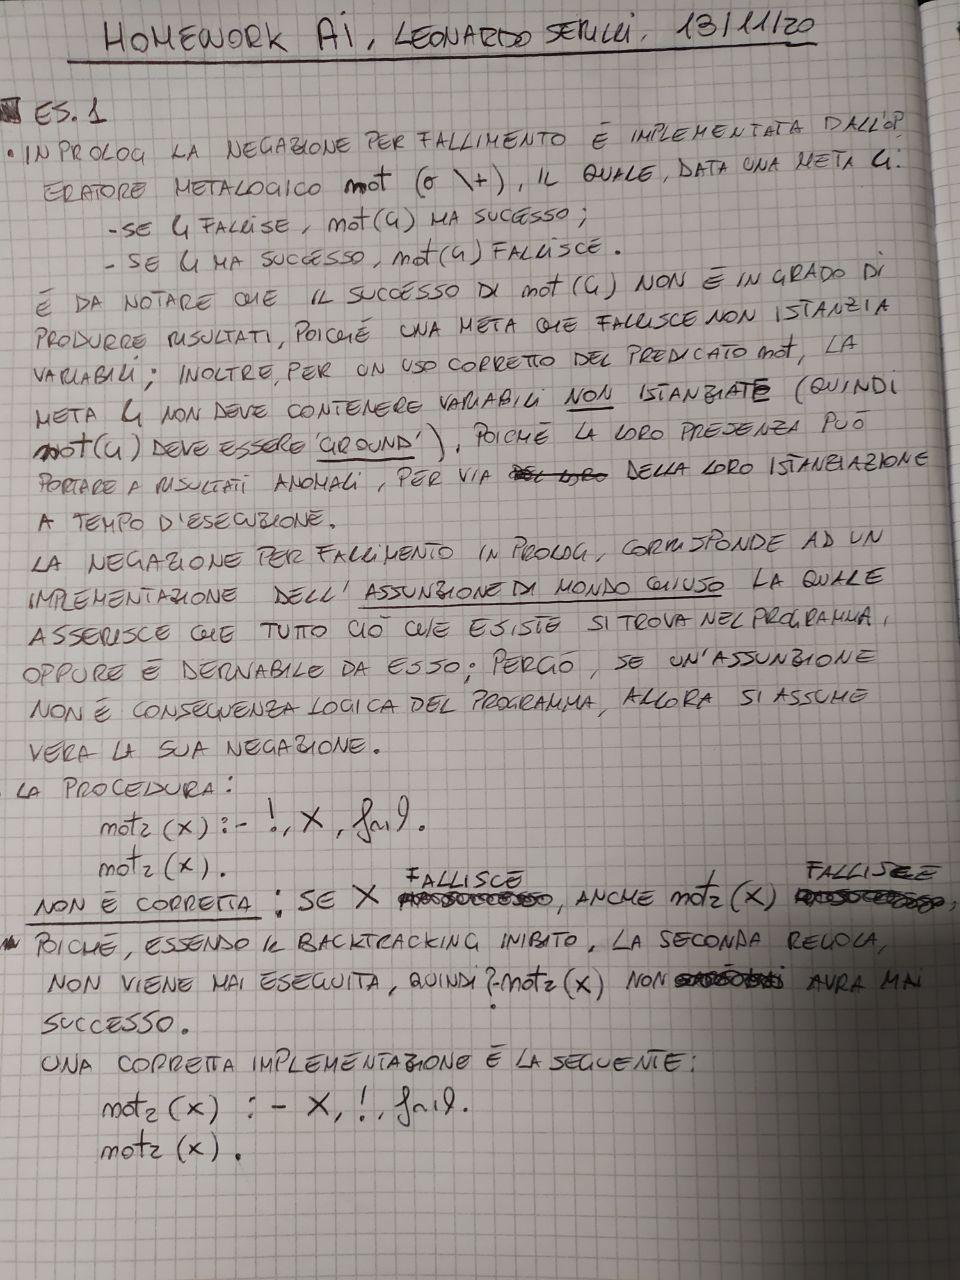 HOMEWORK AI, LEONARDO SERILLI. 13/11/20
ES. 1
• IN PROLOG LA NEGAZIONE PER FALLIMENTO È IMPLEMENTATA DALL'OP
ERATORE METALOGICO not (o \+), IL QUALE, DATA UNA META G:
- SE G FALLISE, not(G) HA SUCCESSO;
- SE G HA SUCCESSO, not(G) FALLISCE.
È DA NOTARE CHE IL SUCCESSO DI not(G) NON È IN GRADO DI
PRODURRE RISULTATI, POICHÉ UNA META CHE FALLISCE NON ISTANZIA
VARIABILI; INOLTRE, PER UN USO CORRETTO DEL PREDICATO not, LA
META G NON DEVE CONTENERE VARIABILI NON ISTANZIATE (QUINDI
not(G) DEVE ESSERE 'GROUND'), POICHÉ LA LORO PRESENZA PUÒ
PORTARE A RISULTATI ANOMALI, PER VIA DELLA LORO ISTANZIAZIONE
A TEMPO D'ESECUZIONE.
LA NEGAZIONE PER FALLIMENTO IN PROLOG, CORRISPONDE AD UN
IMPLEMENTAZIONE DELL'ASSUNZIONE DI MONDO CHIUSO LA QUALE
ASSERISCE CHE TUTTO CIÒ CHE ESISTE SI TROVA NEL PROGRAMMA,
OPPURE È DERIVABILE DA ESSO; PERCIÒ, SE UN'ASSUNZIONE
NON È CONSEGUENZA LOGICA DEL PROGRAMMA, ALLORA SI ASSUME
VERA LA SUA NEGAZIONE.
LA PROCEDURA:
not2(X) :- !, X, fail.
not2(X).
NON È CORRETTA: SE X FALLISCE, ANCHE not2(X) FALLISCE,
POICHÉ, ESSENDO IL BACKTRACKING INIBITO, LA SECONDA REGOLA,
NON VIENE MAI ESEGUITA, QUINDI ?-not2(X) NON AVRA MAI
SUCCESSO.
UNA CORRETTA IMPLEMENTAZIONE È LA SEGUENTE:
not2(X) :- X, !, fail.
not2(X).